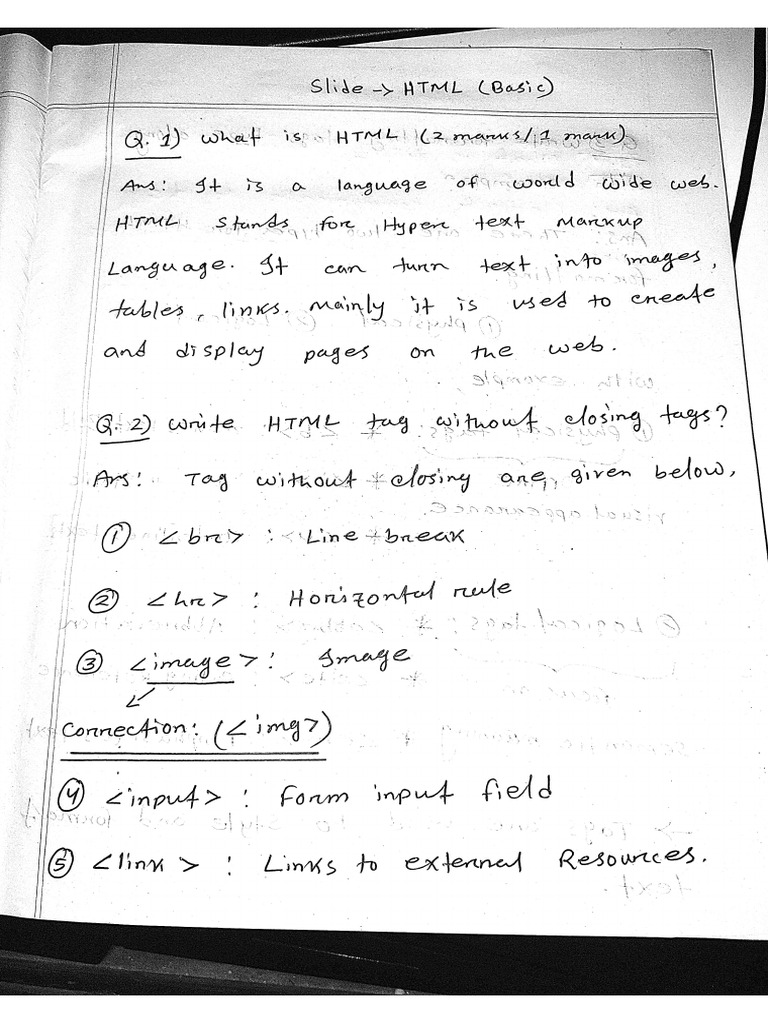 Slide → HTML (Basic)
Q. 1) what is HTML (2 marks/1 mark)
Ans: It is a language of world wide web.
HTML stands for Hyper text Markup
Language. It can turn text into images,
tables, links. mainly it is used to create
and display pages on the web.
Q. 2) write HTML tag without closing tags?
Ans: Tag without closing are given below,
① <br> : Line break
② <hr> : Horizontal rule
③ <image> : Image
Correction: (<img>)
④ <input> : Form input field
⑤ <link> : Links to external Resources.